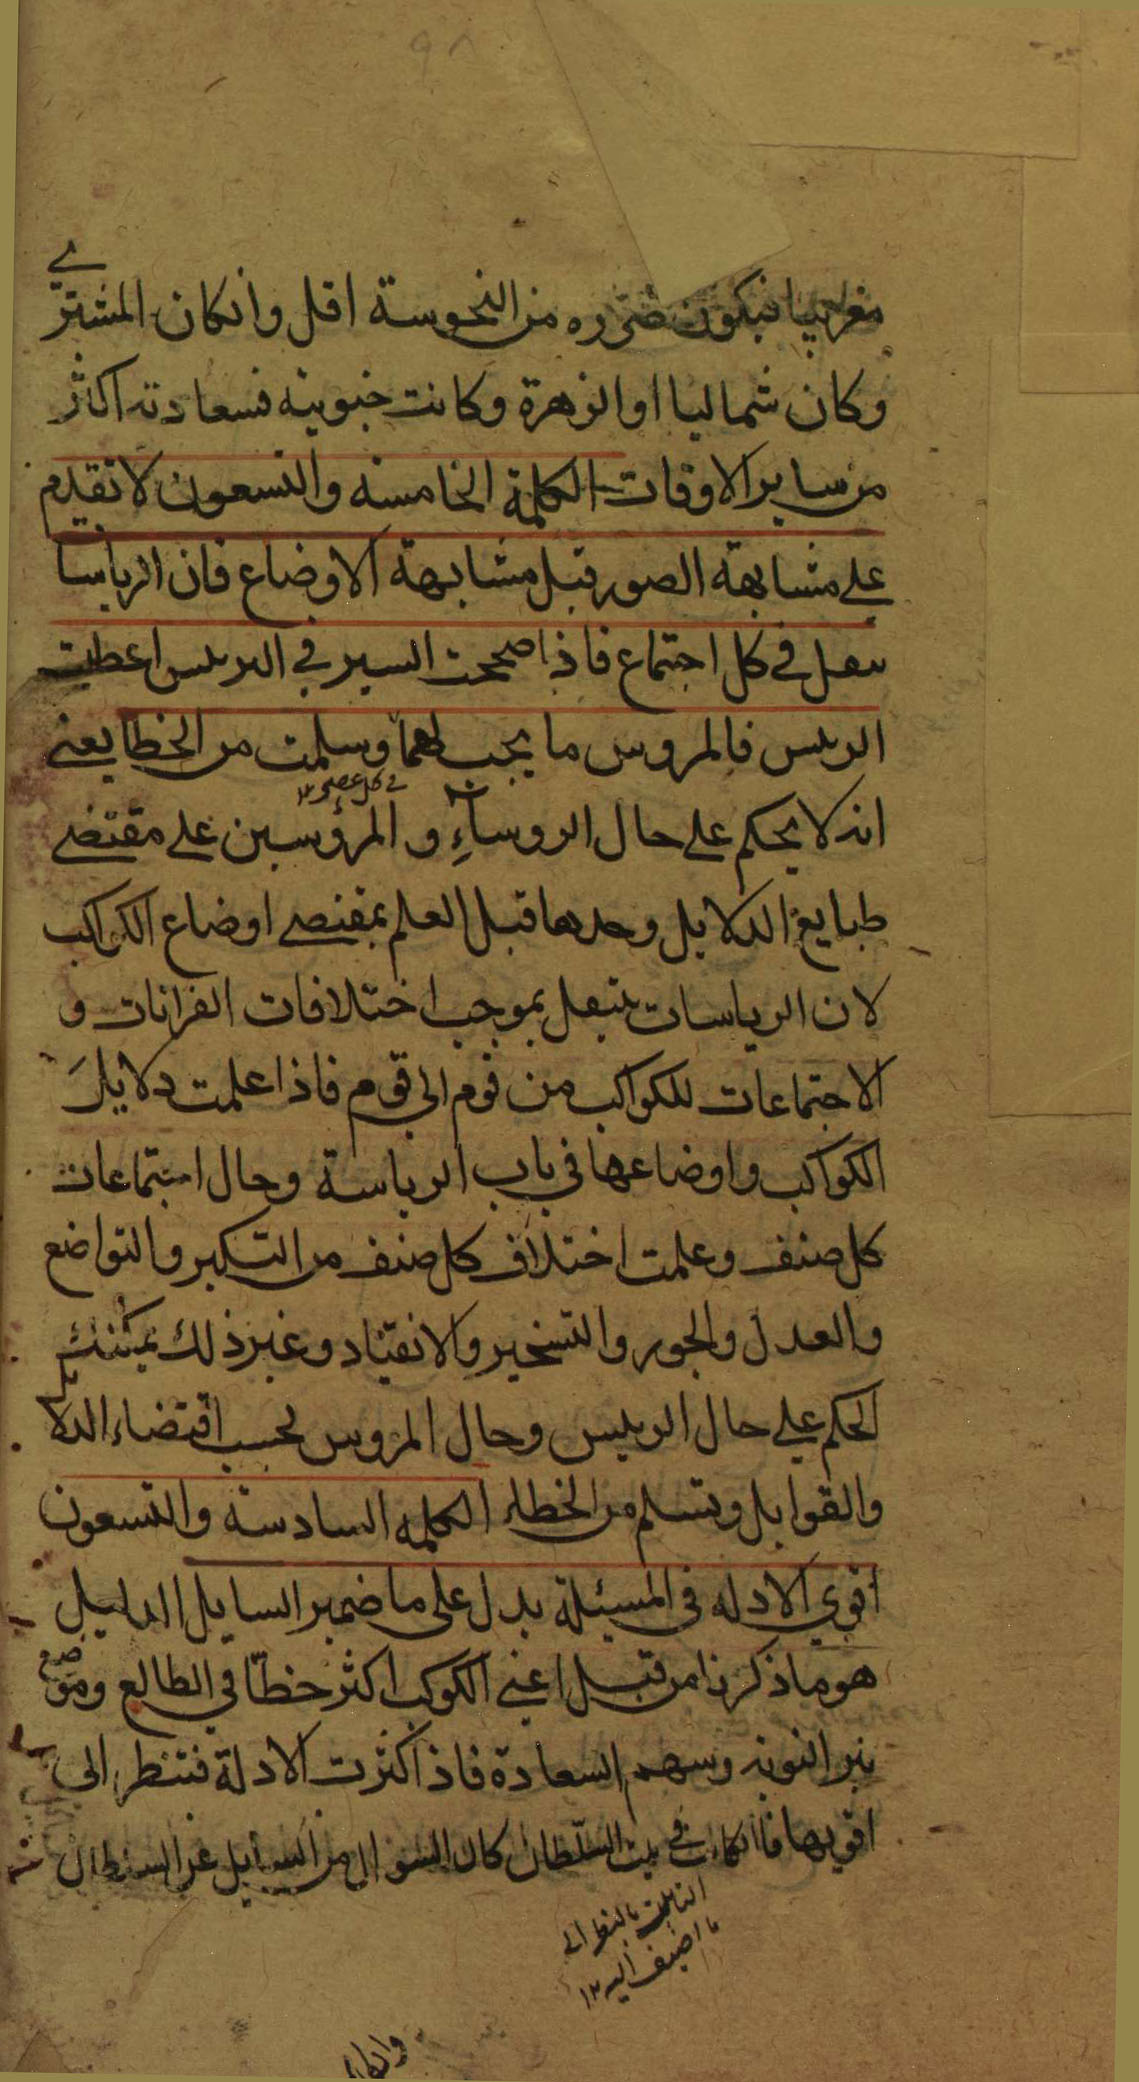 ٩٨
مغربيا فيكون ضرره من النحوسة اقل وانكان المشتري
وكان شماليا او الزهرة وكانت جنوبية فسعادته اكثر
من ساير الاوقات الكلمة الخامسة والتسعون لا تقدم
على مشابهة الصور قبل مشابهة الاوضاع فان الرياسا
تنقل في كل اجتماع فاذا صححت السير في الرئيس اعطيت
الرئيس فالمروس ما يجب لهما وسلمت من الخطا يعنى
في كل عصر ١٢
انه لا يحكم على حال الروساءِ و المرؤسين على مقتضى
طبايع الدلايل وحدها قبل العلم بمقتضى اوضاع الكواكب
لان الرياسات ينتقل بموجب اختلافات القرانات و
الاجتماعات للكواكب من قوم الى قوم فاذا علمت دلايل
الكواكب واوضاعها في باب الرياسة وحال اجتماعات
كل صنف وعلمت اختلاف كل صنف من التكبر والتواضع
والعدل والجور والتسخير والانقياد وغير ذلك يمكنك
الحكم على حال الرئيس وحال المروس بحسب اقتضاء الدلايل
والقوابل وتسلم من الخطاء الكلمه السادسة والتسعون
اقوى الادله في المسئلة يدل على ما ضمير السايل الدليل
هو ما ذكرنا من قبل اعنى الكوكب اكثر خطّا في الطالع وموضع
نير النوبه وسهم السعادة فاذا كثرت الادلة فتنظر الى
اقويها فانكانت في بيت السلطان كان السوال من السايل عن السلطان
التانيث بالنظر الى
ما اضيف اليه ١٢